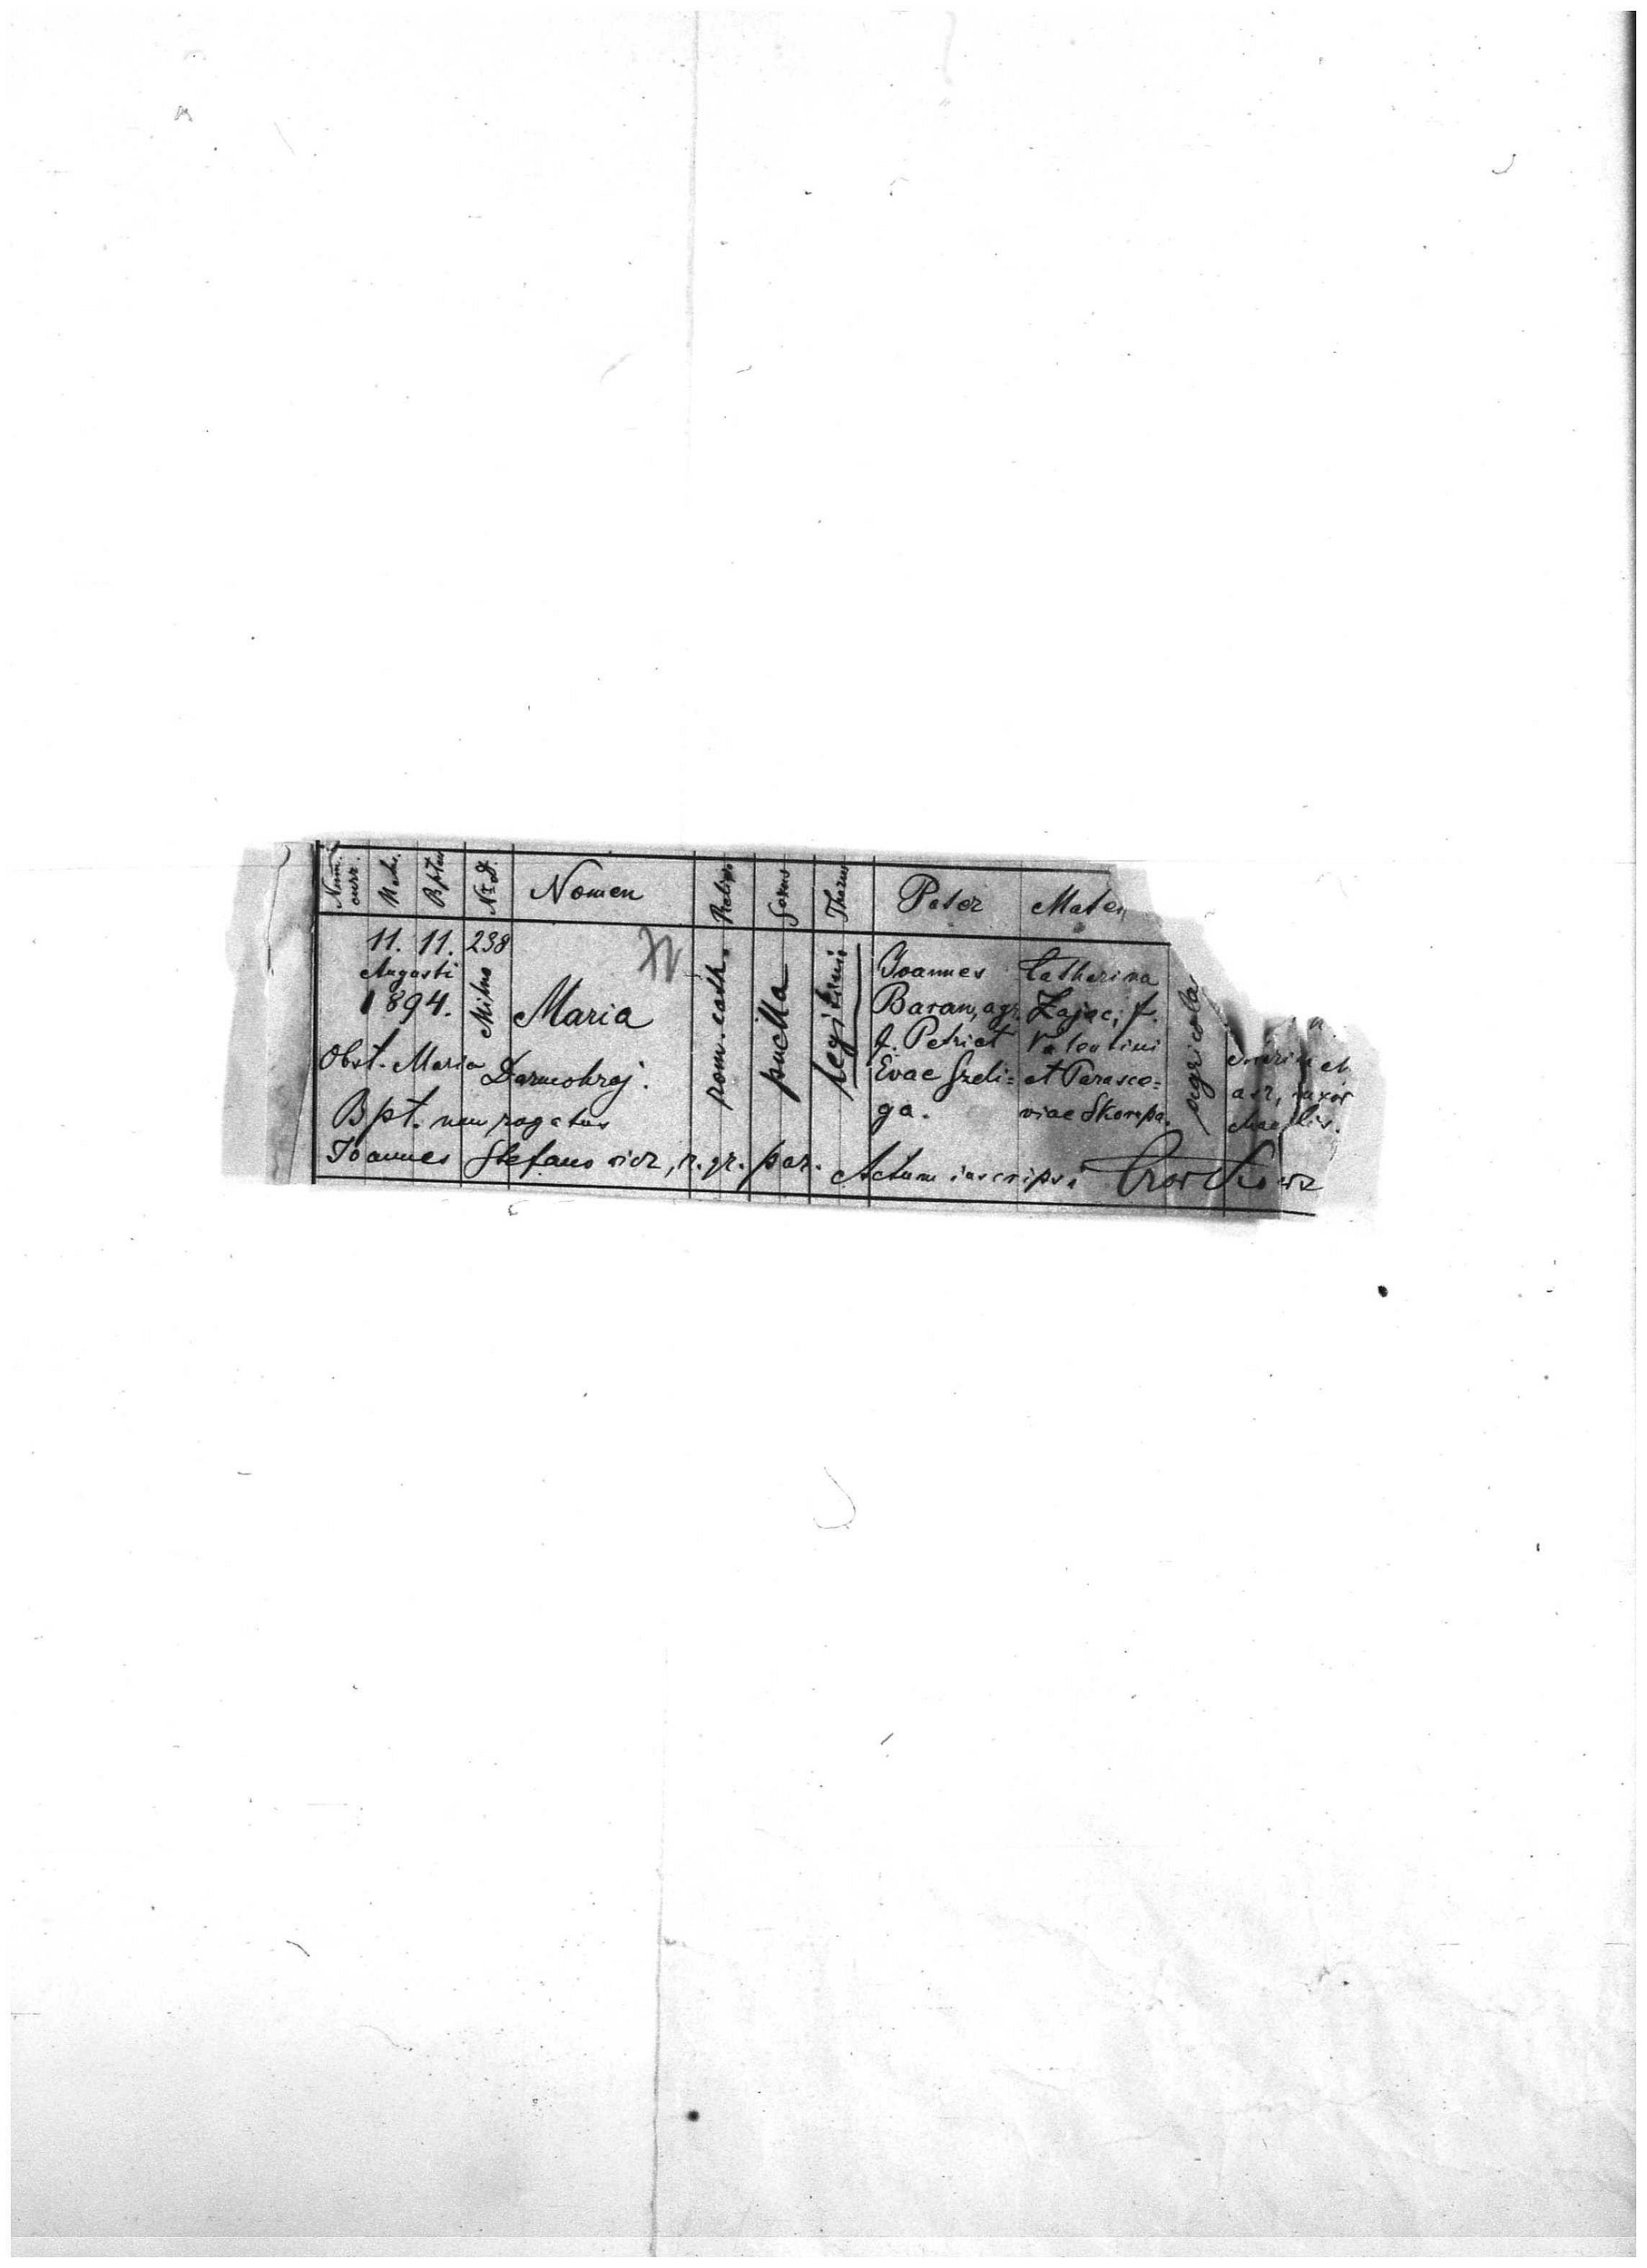 Num. curr. Nati. Bptus N. D. Nomen Religio Sexus Thorus Pater Mater
11. 11. 238
Augusti
1894.
Milno
Maria
rom. cath.
puella
legitimi
Joannes
Baran, agr.
f. Petri et
Evae Szeli=
ga.
Catharina
Zajac, f.
Valentini
et Parasce=
viae Skorepa.
agricola
et
uxor
Obst. Maria Darmohraj.
Bpt. rogatus
Joannes Stefanowicz, r. gr. par.
Actum inscripsi